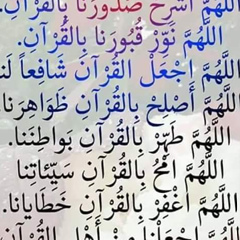 اللَّهُمَّ اشْرَحْ صُدُورَنا بِالقُرْآنِ.
اللَّهُمَّ نَوِّرْ قُبُورَنا بِالقُرْآنِ.
اللَّهُمَّ اجْعَلْ القُرْآنَ شَافِعاً لنا
اللَّهُمَّ أَصْلِحْ بِالقُرْآنِ ظَوَاهِرَنا
اللَّهُمَّ طَهِّرْ بِالقُرْآنِ بَوَاطِنَنا.
اللَّهُمَّ امْحُ بِالقُرْآنِ سَيِّئَاتِنا
اللَّهُمَّ اغْفِرْ بِالقُرْآنِ خَطَايانا.
اللَّهُمَّ اجْعَلْنا مِنْ أَهْلِ القُرْآنِ